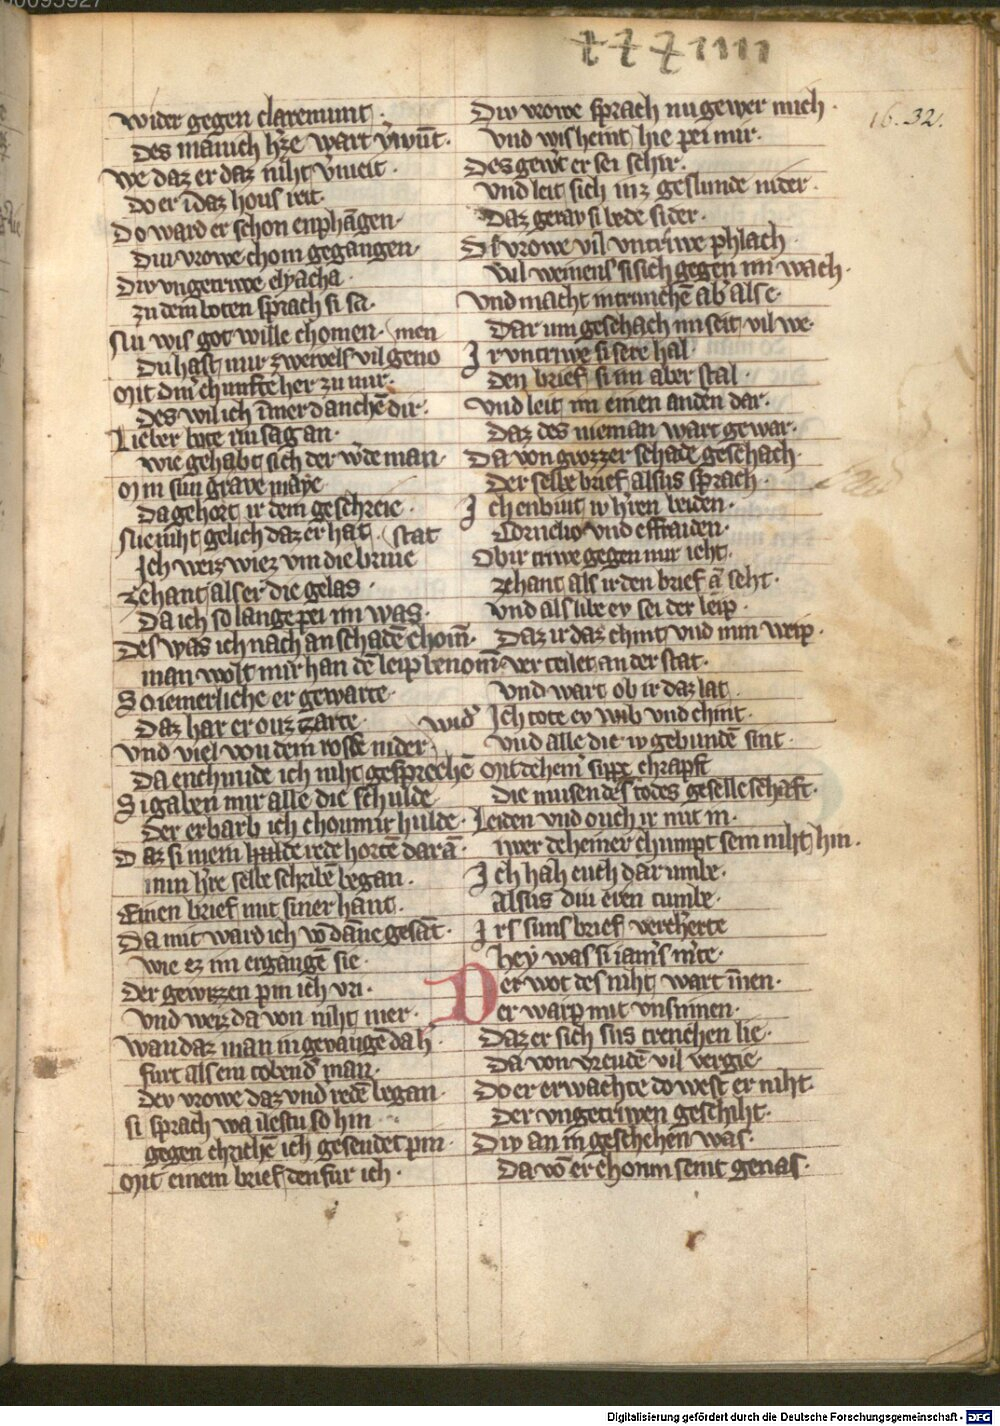 xxxiiii
16. 32.
wider gegen claremunt
Des manich hˀze wart v̓wūt.
we daz er daz niht v̓meit.
do er ī daz hous reit.
Do ward er schon enphāgen.
Diu vrowe chom gegangen.
Div vngetriwe elyacha.
zu dem boten sprach si sa.
Nu wis got wille chomen. men
Du hast mir zweivels vil geno
Mit dinˀ chunfte her zu mir.
des wil ich im̄er danchē dir.
Lieber bote nu sag an.
wie gehabt sich der wˀde man.
Min sun grave maye
Da gehort ir dem geschreie.
Sie niht gelich daz er hat. stat
Ich weiz wiez vm die brive
zehant als er die gelas.
Da ich so lange pei im was.
Des was ich nach an schadē chom̄.
man wolt mir han dē leip benom̄
So iemerliche er gewarte.
Daz har er ouz zarte. widˀ
vnd viel von dem rosse nider
Da enchunde ich niht gesprechē
Si gaben mir alle die schulde
der erbarb ich choum ir hulde.
Daz si mein rede horte darā.
min hˀre selbe schribē began.
Einen brief mit siner hant.
Da mit ward ich vō dāne gesāt.
wie ez im ergangē sie.
Der gewizzen pin ich vri.
vnd weiz da von niht mer.
wan daz man in gevange da h
furt als ein tobendˀ man.
Dev vrowe daz vnd redē began.
si sprach wa ilestu so hin
gegen chrichē ich gesendet pin.
Mit einem brief den fur ich.
Div vrowe sprach nu gewer mich.
vnd wis heint hie pei mir.
Des gewˀt er sei schir.
vnd leit sich inz geslunde nider.
Daz geray si bede sider.
Di vrowe vil vntriwe phlach
wil weinens si sich gegen im wach.
vnd macht in trunchē abˀ als e.
Dar um geschach im seit vil we.
Ir vntriwe si sere hal.
den brief si im aber stal.
vnd leit im einen andern dar.
Daz des nieman wart gewar.
Da von grozzer schade geschach.
Der selbe brief alsus sprach.
Ich enbiut iv hˀren beiden.
Cornelio vnd effraiden.
Ob ir triwe gegen mir icht.
zehant als ir den brief ā seht.
vnd als libe ev sei der leip.
Daz ir daz chint vnd min weip.
ver teilet an der stat.
vnd wart ob ir daz lat
Ich tote ev wib vnd chint.
vnd alle die iv gebundē sint.
Mit dehemˀ sippe chrapft
die musen des todes geselleschaft.
Leiden vnd ouch ir mit in.
iwer deheiner chumpt sein niht hin.
Ich hah euch dar umbe.
Alsus diu even tumbe.
Irs suns brief vercherte
hey was si iamˀs mˀte.
Der bot des niht wart īnen.
Der warp mit vnsinnen.
Daz er sich sus trenchen lie.
Da von vreudē vil vergie.
Do er erwachte do west er niht.
Der vngetriwen geschiht.
Div an im geschehen was.
Da vō er choum seint genas.